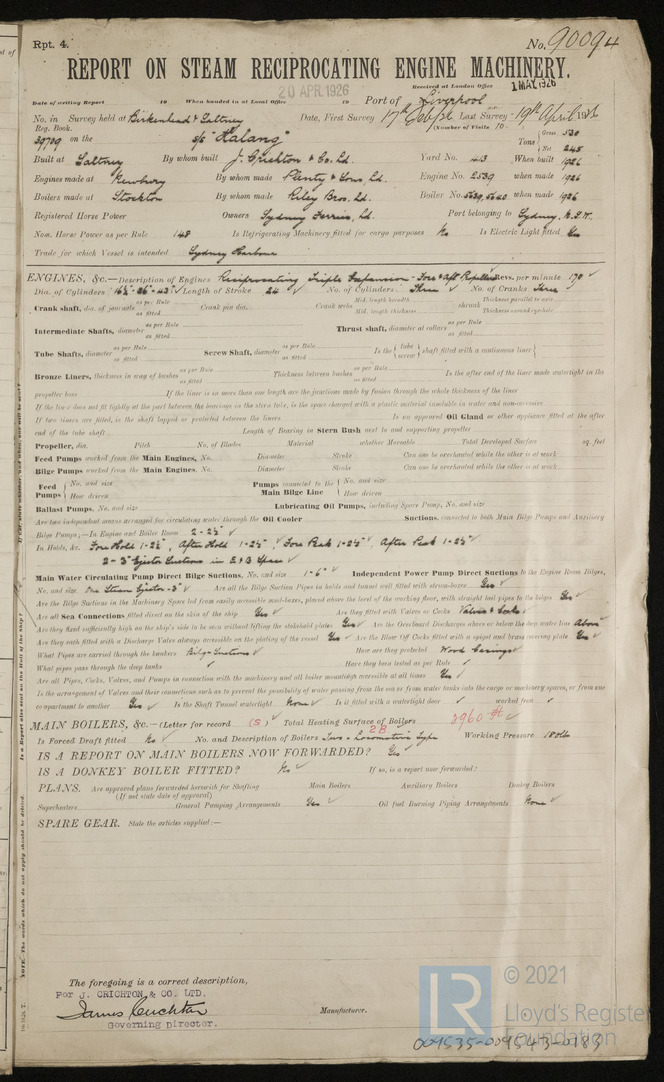 Rpt. 4.
No. 90094
REPORT ON STEAM RECIPROCATING ENGINE MACHINERY.
20 APR. 1926
Received at London Office 1 MAY 1926
Date of writing Report 19 When handed in at Local Office 19 Port of Liverpool
No. in Survey held at Birkenhead & Saltney Date, First Survey 17th Sept Last Survey 19th April 1926
Reg. Book. (Number of Visits 10
39709 on the S/S "Kalang" Tons Gross 530 Net 245
Built at Saltney By whom built J. Crichton & Co. Ld. Yard No. 413 When built 1926
Engines made at Newbury By whom made Plenty & Sons, Ld. Engine No. 2539 when made 1926
Boilers made at Stockton By whom made Riley Bros. Ld. Boiler No. 5639, 5640 when made 1926
Registered Horse Power Owners Sydney Ferries, Ld. Port belonging to Sydney, N.S.W.
Nom. Horse Power as per Rule 148 Is Refrigerating Machinery fitted for cargo purposes No Is Electric Light fitted Yes
Trade for which Vessel is intended Sydney Harbour
ENGINES, &c.—Description of Engines Reciprocating Triple Expansion - Fore & Aft Propellers Revs. per minute 170
Dia. of Cylinders 16½"-26"-43" Length of Stroke 24 No. of Cylinders Three No. of Cranks Three
Crank shaft, dia. of journals as per Rule as fitted Crank pin dia. Crank webs Mid. length breadth Mid. length thickness shrunk Thickness parallel to axis Thickness around eye-hole
Intermediate Shafts, diameter as per Rule as fitted Thrust shaft, diameter at collars as per Rule as fitted
Tube Shafts, diameter as per Rule as fitted Screw Shaft, diameter as per Rule as fitted Is the { tube screw } shaft fitted with a continuous liner
Bronze Liners, thickness in way of bushes as per Rule as fitted Thickness between bushes as per Rule as fitted Is the after end of the liner made watertight in the
propeller boss If the liner is in more than one length are the junctions made by fusion through the whole thickness of the liner
If the liner does not fit tightly at the part between the bearings in the stern tube, is the space charged with a plastic material insoluble in water and non-corrosive
If two liners are fitted, is the shaft lapped or protected between the liners Is an approved Oil Gland or other appliance fitted at the after
end of the tube shaft Length of Bearing in Stern Bush next to and supporting propeller
Propeller, dia. Pitch No. of Blades Material whether Moveable Total Developed Surface sq. feet
Feed Pumps worked from the Main Engines, No. Diameter Stroke Can one be overhauled while the other is at work
Bilge Pumps worked from the Main Engines, No. Diameter Stroke Can one be overhauled while the other is at work
Feed Pumps { No. and size How driven Pumps connected to the Main Bilge Line { No. and size How driven
Ballast Pumps, No. and size Lubricating Oil Pumps, including Spare Pump, No. and size
Are two independent means arranged for circulating water through the Oil Cooler Suctions, connected to both Main Bilge Pumps and Auxiliary
Bilge Pumps;—In Engine and Boiler Room 2 - 2½"
In Holds, &c. Fore Hold 1-2½", After Hold 1-2½", Fore Peak 1-2½", After Peak 1-2½"
2 - 3" Ejector Suctions in E & B Space
Main Water Circulating Pump Direct Bilge Suctions, No. and size 1-6" Independent Power Pump Direct Suctions to the Engine Room Bilges,
No. and size One Steam Ejector - 3" Are all the Bilge Suction Pipes in holds and tunnel well fitted with strum-boxes Yes
Are the Bilge Suctions in the Machinery Space led from easily accessible mud-boxes, placed above the level of the working floor, with straight tail pipes to the bilges Yes
Are all Sea Connections fitted direct on the skin of the ship Yes Are they fitted with Valves or Cocks Valves & Cocks
Are they fixed sufficiently high on the ship's side to be seen without lifting the stokehold plates Yes Are the Overboard Discharges above or below the deep water line Above
Are they each fitted with a Discharge Valve always accessible on the plating of the vessel Yes Are the Blow Off Cocks fitted with a spigot and brass covering plate Yes
What Pipes are carried through the bunkers Bilge Suctions How are they protected Wood Casings
What pipes pass through the deep tanks Have they been tested as per Rule
Are all Pipes, Cocks, Valves, and Pumps in connection with the machinery and all boiler mountings accessible at all times Yes
Is the arrangement of Valves and their connections such as to prevent the possibility of water passing from the sea or from water tanks into the cargo or machinery spaces, or from one
compartment to another Yes Is the Shaft Tunnel watertight None Is it fitted with a watertight door worked from
MAIN BOILERS, &c.—(Letter for record (S) ) Total Heating Surface of Boilers 2960 ft
2B
Is Forced Draft fitted No No. and Description of Boilers Two - Locomotive type Working Pressure 180 lbs
IS A REPORT ON MAIN BOILERS NOW FORWARDED? Yes
IS A DONKEY BOILER FITTED? No If so, is a report now forwarded?
PLANS. Are approved plans forwarded herewith for Shafting Main Boilers Auxiliary Boilers Donkey Boilers
(If not state date of approval)
Superheaters General Pumping Arrangements Yes Oil fuel Burning Piping Arrangements None
SPARE GEAR. State the articles supplied:—
The foregoing is a correct description,
For J. CRICHTON & CO. LTD.
James Crichton
Governing Director.
Manufacturer.
© 2021
LR
Lloyd's Register
Foundation
009535-009543-0183